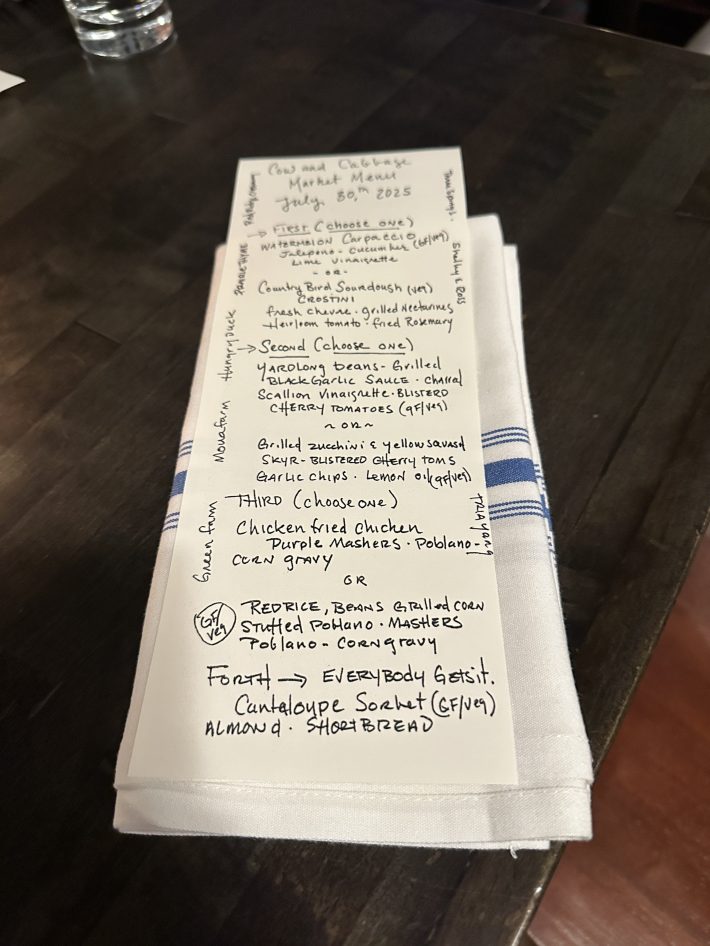 Cow and Cabbage
Market Menu
July 30,th 2025
→ First (choose one)
WATERMELON Carpaccio
Jalapeno - Cucumber (GF/veg)
Lime Vinaigrette
- OR -
Country Bird Sourdough (veg)
CROSTINI
fresh chevre · grilled Nectarines
Heirloom tomato · fried Rosemary
→ Second (choose one)
YARDLONG beans - Grilled
BLACK Garlic SAUCE ·
Scallion Vinaigrette · BLISTERD
CHERRY TOMATOES (GF/veg)
~ OR ~
Grilled zucchini & yellow squash
SKYR - BLISTERED CHerry toms
GARLIC CHIPS · Lemon oil (GF/veg)
THIRD (choose one)
Chicken fried chicken
Purple Mashers · Poblano -
CORN gravy
OR
GF/veg
RED RICE, BEANS GRilled CORN
Stuffed Poblano · MASHERS
Poblano - CORN gravy
FORTH → EVERYBODY Gets it.
Cantaloupe Sorbet (GF/veg)
ALMOND · SHORTBREAD
Green farm
Hungry Duck
PRAIRIE THYME
Shelby & Ross